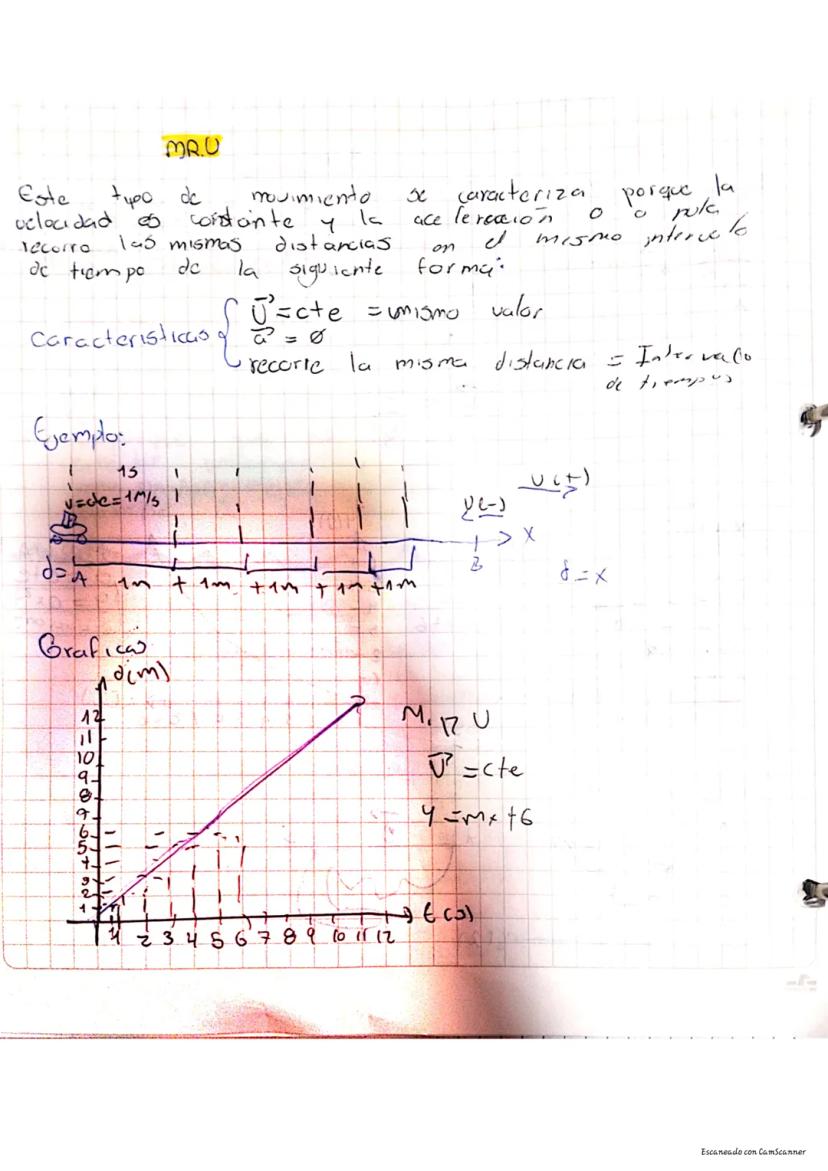 M.R.U
Este tipo de movimiento se caracteriza porque la
velocidad es constante y la aceleración 0 o nula,
recorre las mismas distancias en el mismo intervalo
de tiempo de la siguiente forma:
Caracteristicas
V=cte = mismo valor
a = ø
recorre la misma distancia = Intervalo
de tiempos
Ejemplo:
1s
1M/s
V(-)
V(+)
X
B
d= A 1m + 1m + 1m + 1m + 1m
d=x
Graficas
d(m)
12
11
10
9
8
7
6
5
4
3
2
1
M. R U
V=cte
y=mx+b
t(s)
1 2 3 4 5 6 7 8 9 10 11 12
Escaneado con CamScanner